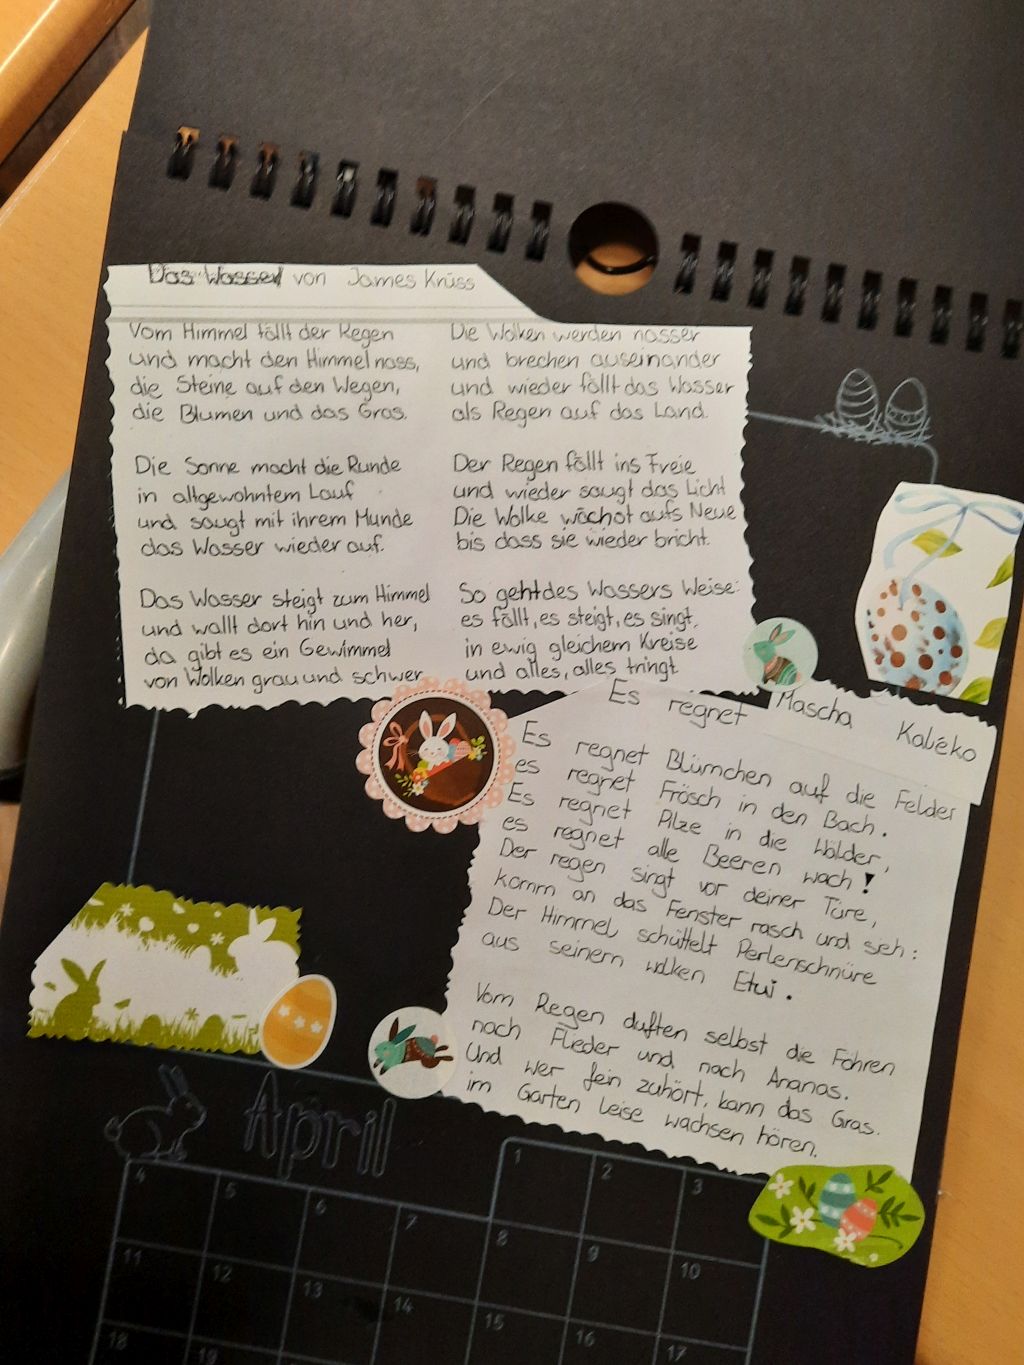 Das Wasser von James Krüss
Vom Himmel fällt der Regen
und macht den Himmel nass,
die Steine auf den Wegen,
die Blumen und das Gras.
Die Sonne macht die Runde
in altgewohntem Lauf
und saugt mit ihrem Munde
das Wasser wieder auf.
Das Wasser steigt zum Himmel
und wallt dort hin und her,
da gibt es ein Gewimmel
von Wolken grau und schwer
Die Wolken werden nasser
und brechen auseinander
und wieder fällt das Wasser
als Regen auf das Land.
Der Regen fällt ins Freie
und wieder saugt das Licht
Die Wolke wächst aufs Neue
bis dass sie wieder bricht.
So geht des Wassers Weise:
es fällt, es steigt, es singt,
in ewig gleichem Kreise
und alles, alles tringt
Es regnet Mascha Kaléko
Es regnet Blümchen auf die Felder
es regnet Frösch in den Bach.
Es regnet Pilze in die Wälder,
es regnet alle Beeren wach!
Der regen singt vor deiner Türe,
komm an das Fenster rasch und seh:
Der Himmel schüttelt Perlenschnüre
aus seinem wolken Etui.
Vom Regen duften selbst die Föhren
nach Flieder und nach Ananas.
Und wer fein zuhört, kann das Gras.
im Garten leise wachsen hören.
April
1 2 3
4 5 6 7 8 9 10
11 12 13 14 15 16 17
18 19